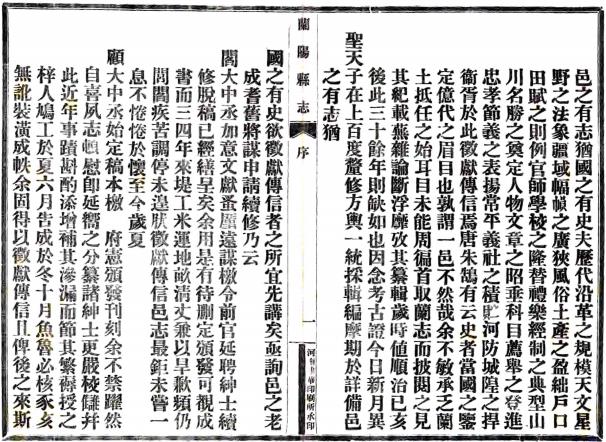 邑之有志猶國之有史夫歷代沿革之規模天文星
野之法象疆域幅幀之廣狹風俗土產之盈絀戶口
田賦之則例官師學校之隆替禮樂經制之典型山
川名勝之奠定人物文章之昭垂科目薦舉之登進
忠孝節義之表揚常平義社之積貯河防城隍之捍
衞胥於此徵獻傳信焉唐朱鵠有云史者當國之鑒
定億代之眉目也孰謂一邑不然哉余不敏承乏蘭
土抵任之始耳目未能周徧首取蘭志而披閱之見
其紀載蕪雜論斷浮靡攷其纂輯歲時值順治已亥
後此三十餘年則缺如也因念考古證今日新月異
聖天子在上百度釐修方輿一統採輯編摩期於詳備邑
之有志猶
蘭陽縣志
序
一
國之有史欲徵獻傳信者之所宜先講矣亟詢邑之老
成耆舊將謀申請續修乃云
閻大中丞加意文獻蚤厪遠謀檄令前官延聘紳士續
修脫稿已經繕呈矣余用是有待刪定頒發可覩成
書而三四年來堤工米運地畝淸丈兼以旱歉頻仍
閭閻疾苦調停未遑狀徵獻傳信邑志最鉅未嘗一
息不惓惓於懷至今歲夏
顧大中丞始定稿本檄 府憲頒發刊刻余不禁躍然
自喜夙志頓慰卽延嚮之分纂諸紳士更嚴校讎幷
此近年事蹟斟酌添增補其滲漏而節其繁授之
梓人鳩工於夏六月告成於冬十月魚魯必核豕亥
無訛裝潢成帙余固得以徵獻傳信且俾後之來斯